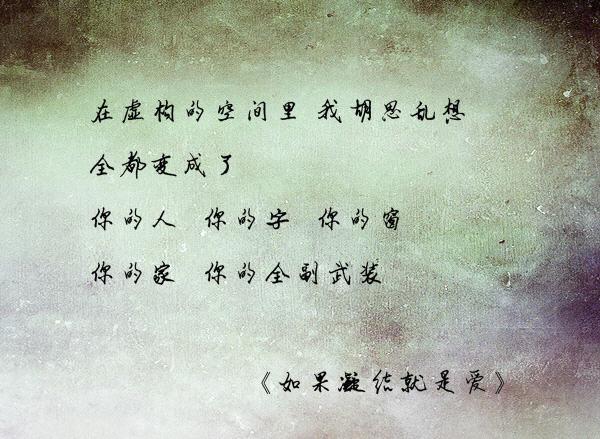 在虚构的空间里 我胡思乱想
全都变成了
你的人 你的字 你的窗
你的家 你的全副武装
《如果凝结就是爱》